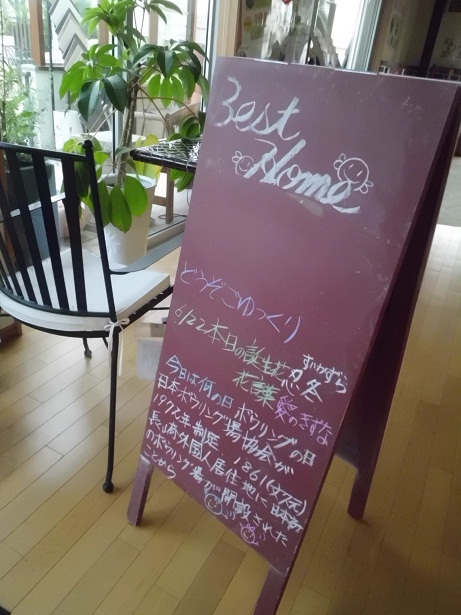 Best
Home
どうぞごゆっくり
6/22 本日の誕生花 すいかずら 忍冬
花言葉 愛のきずな
今日は何の日 ボウリングの日
日本ボウリング場協会が
1972年制定 1861(文久元)
長崎外国人居住地に日本初
のボウリング場が開設された
ことから